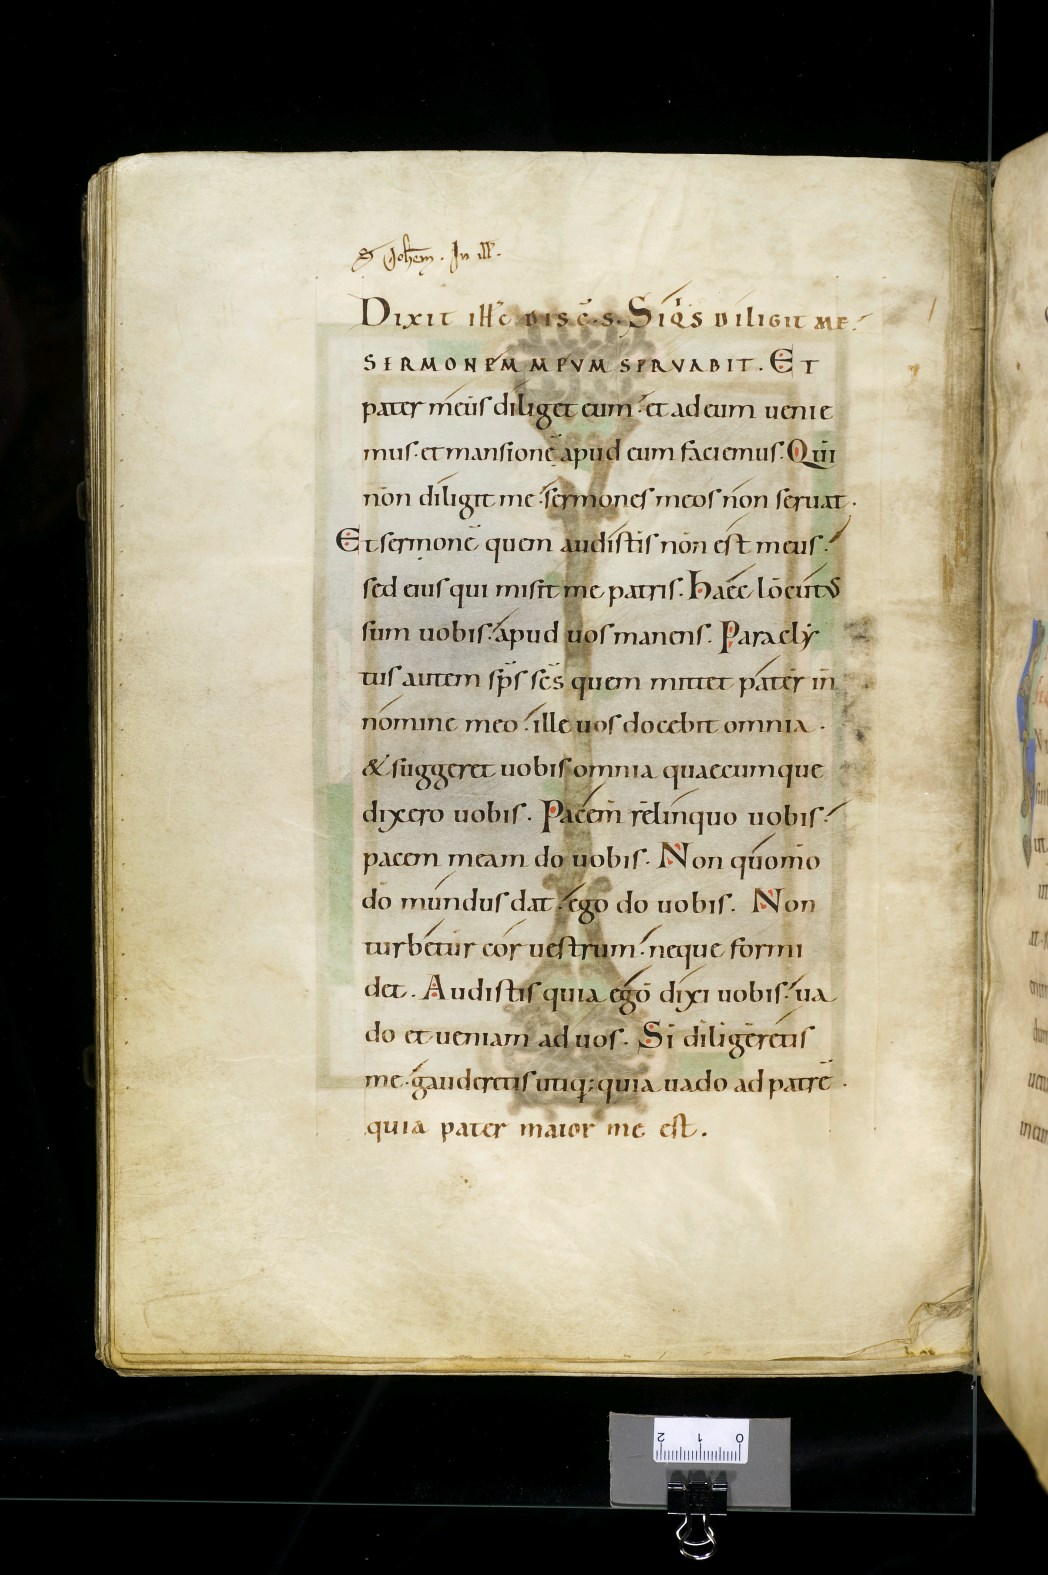 S Johem. In ill.
Dixit ihc disc̄.s. Siqͥs diligit me.
sermonem meum servabit. Et
pater meus diliget eum. et ad eum uenie
mus. et mansionē apud eum faciemus. Qui
non diligit me. sermones meos non seruat.
Et sermonē quem audistis non est meus.
sed eius qui misit me patris. Haec locutus
sum uobis. apud uos manens. Paracly
tus autem sp̄s sc̄s quem mittet pater in
nomine meo. ille uos docebit omnia.
& suggeret uobis omnia quaecumque
dixero uobis. Pacem relinquo uobis.
pacem meam do uobis. Non quomo
do mundus dat. ego do uobis. Non
turbetur cor uestrum. neque formi
det. Audistis quia ego dixi uobis. ua
do et ueniam ad uos. Si diligeretis
me. gauderetis utiq; quia uado ad patrē.
quia pater maior me est.
2 1 0